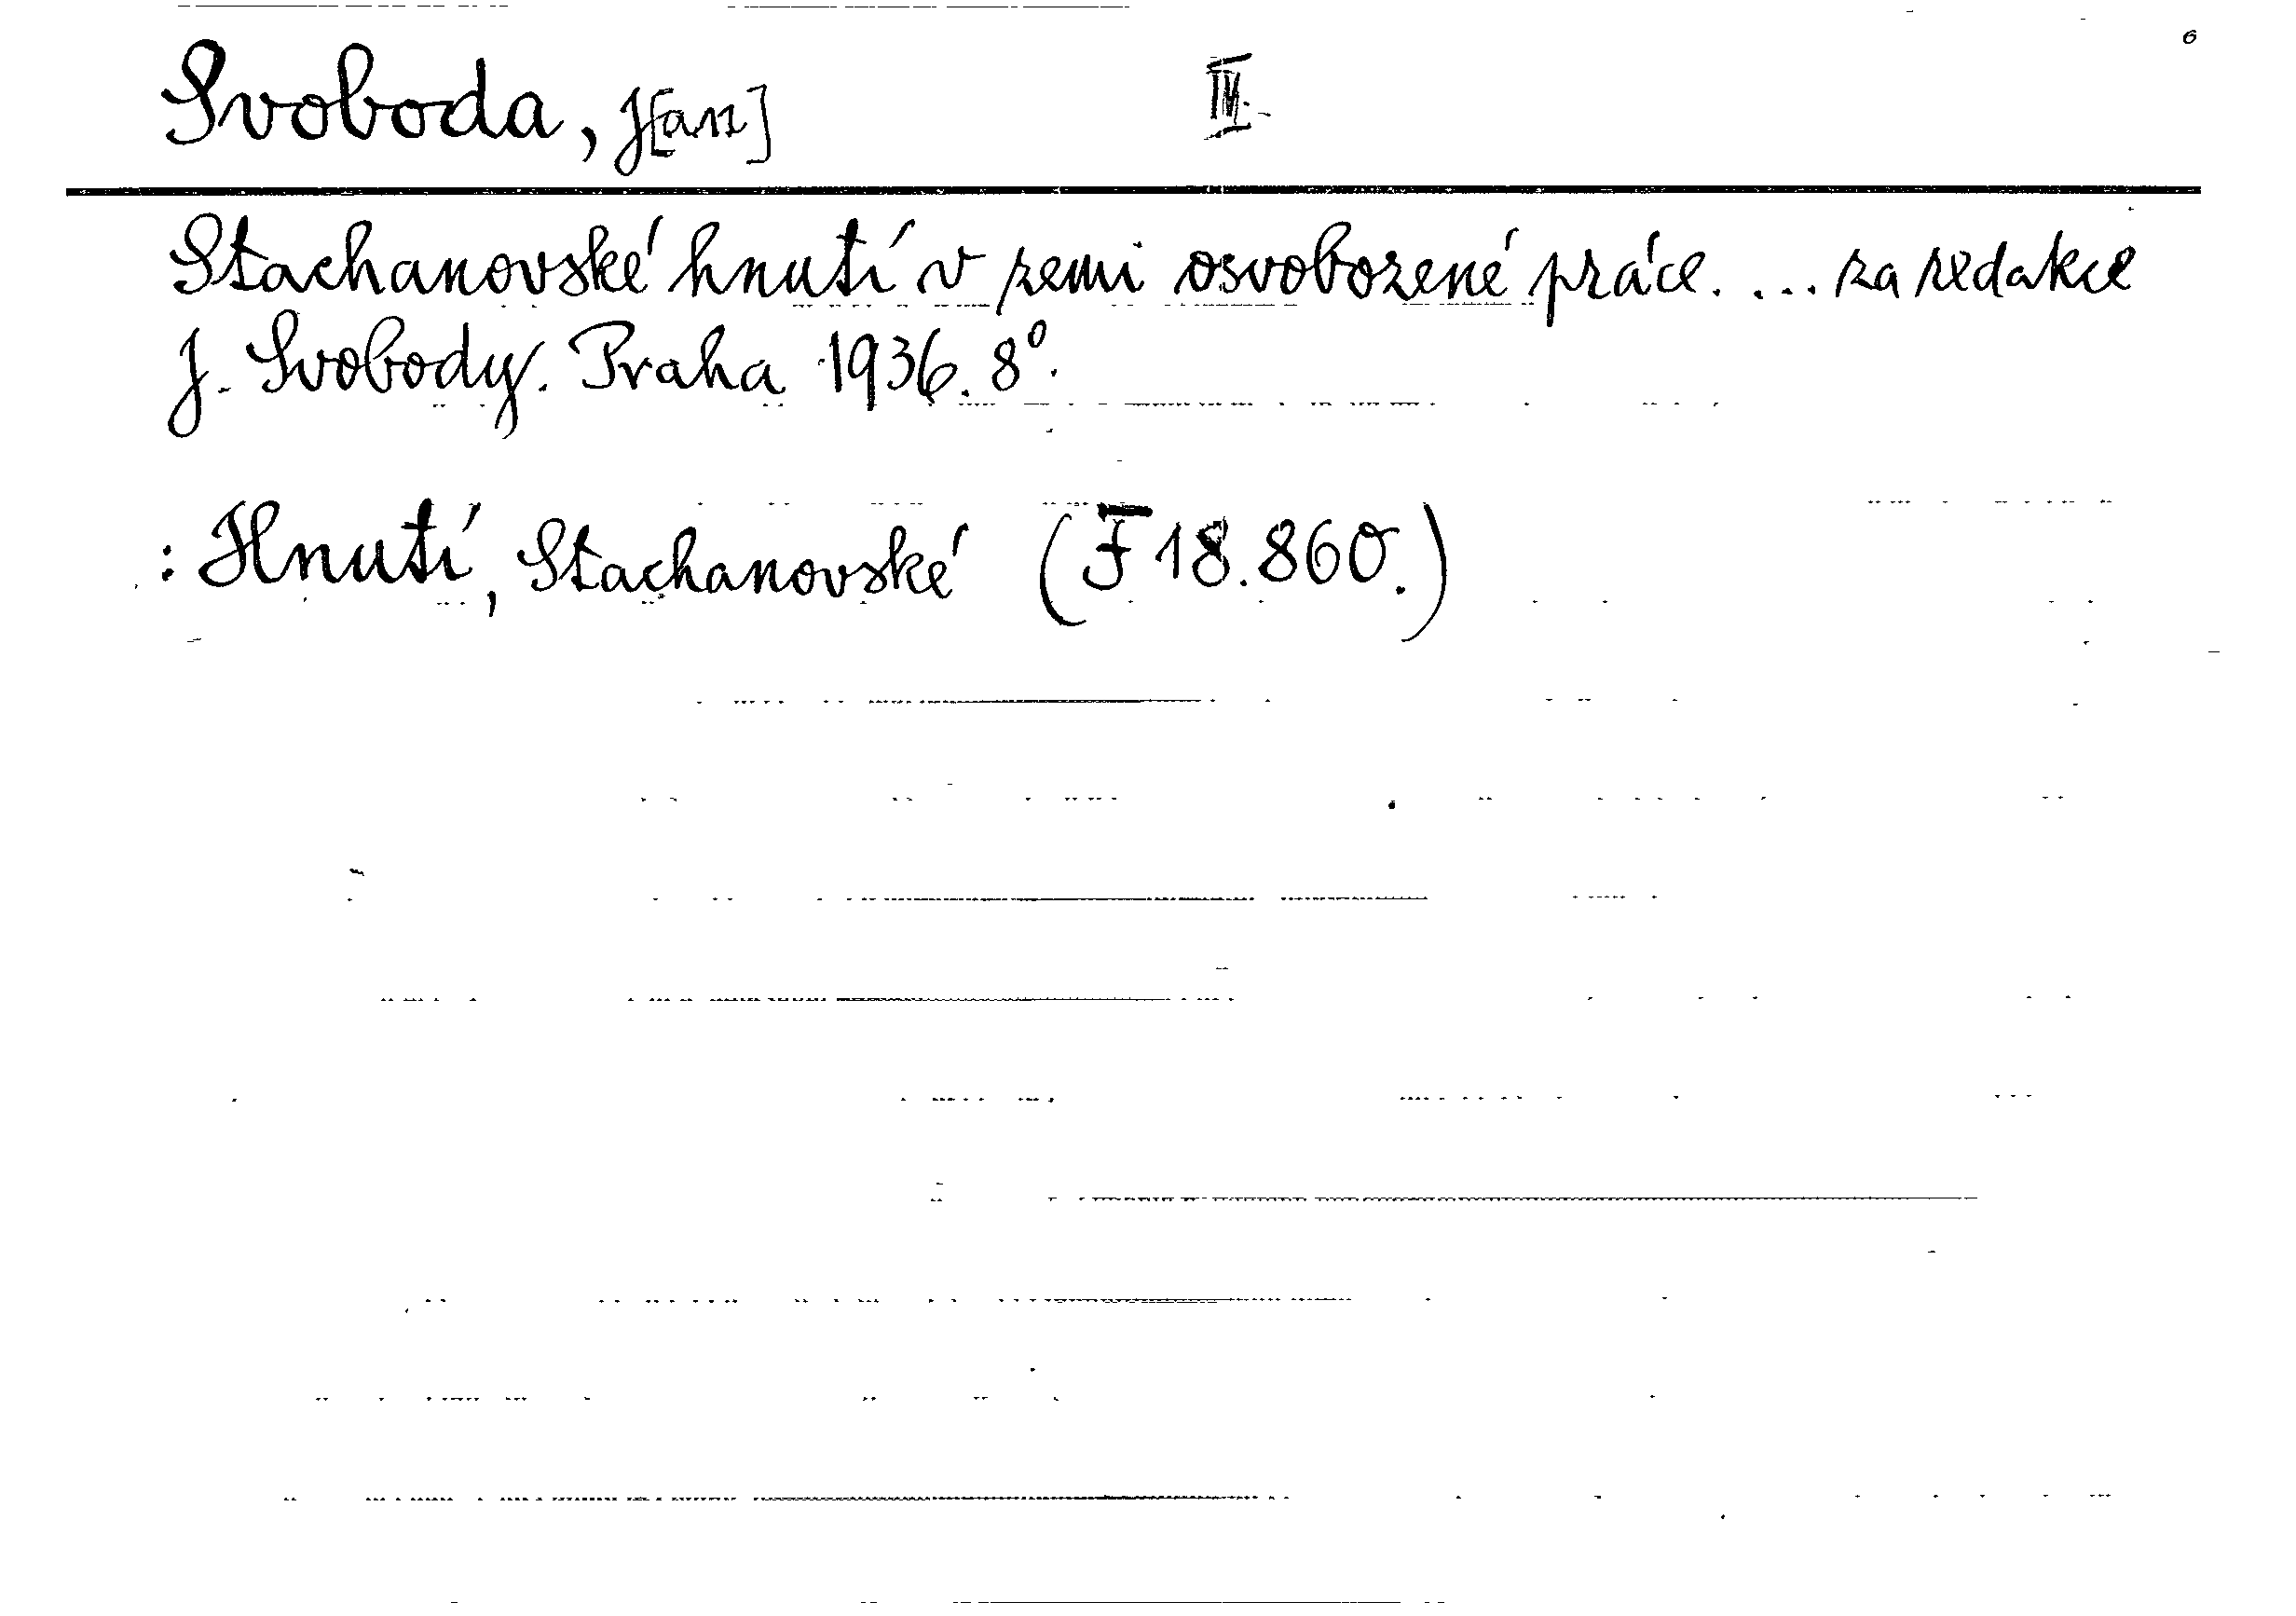 Svoboda, J[an]
Stachanovské hnutí v zemi osvobozené práce. ... za redakce
J. Svobody. Praha 1936. 8°.
: Hnutí, Stachanovské (F 18.860.)